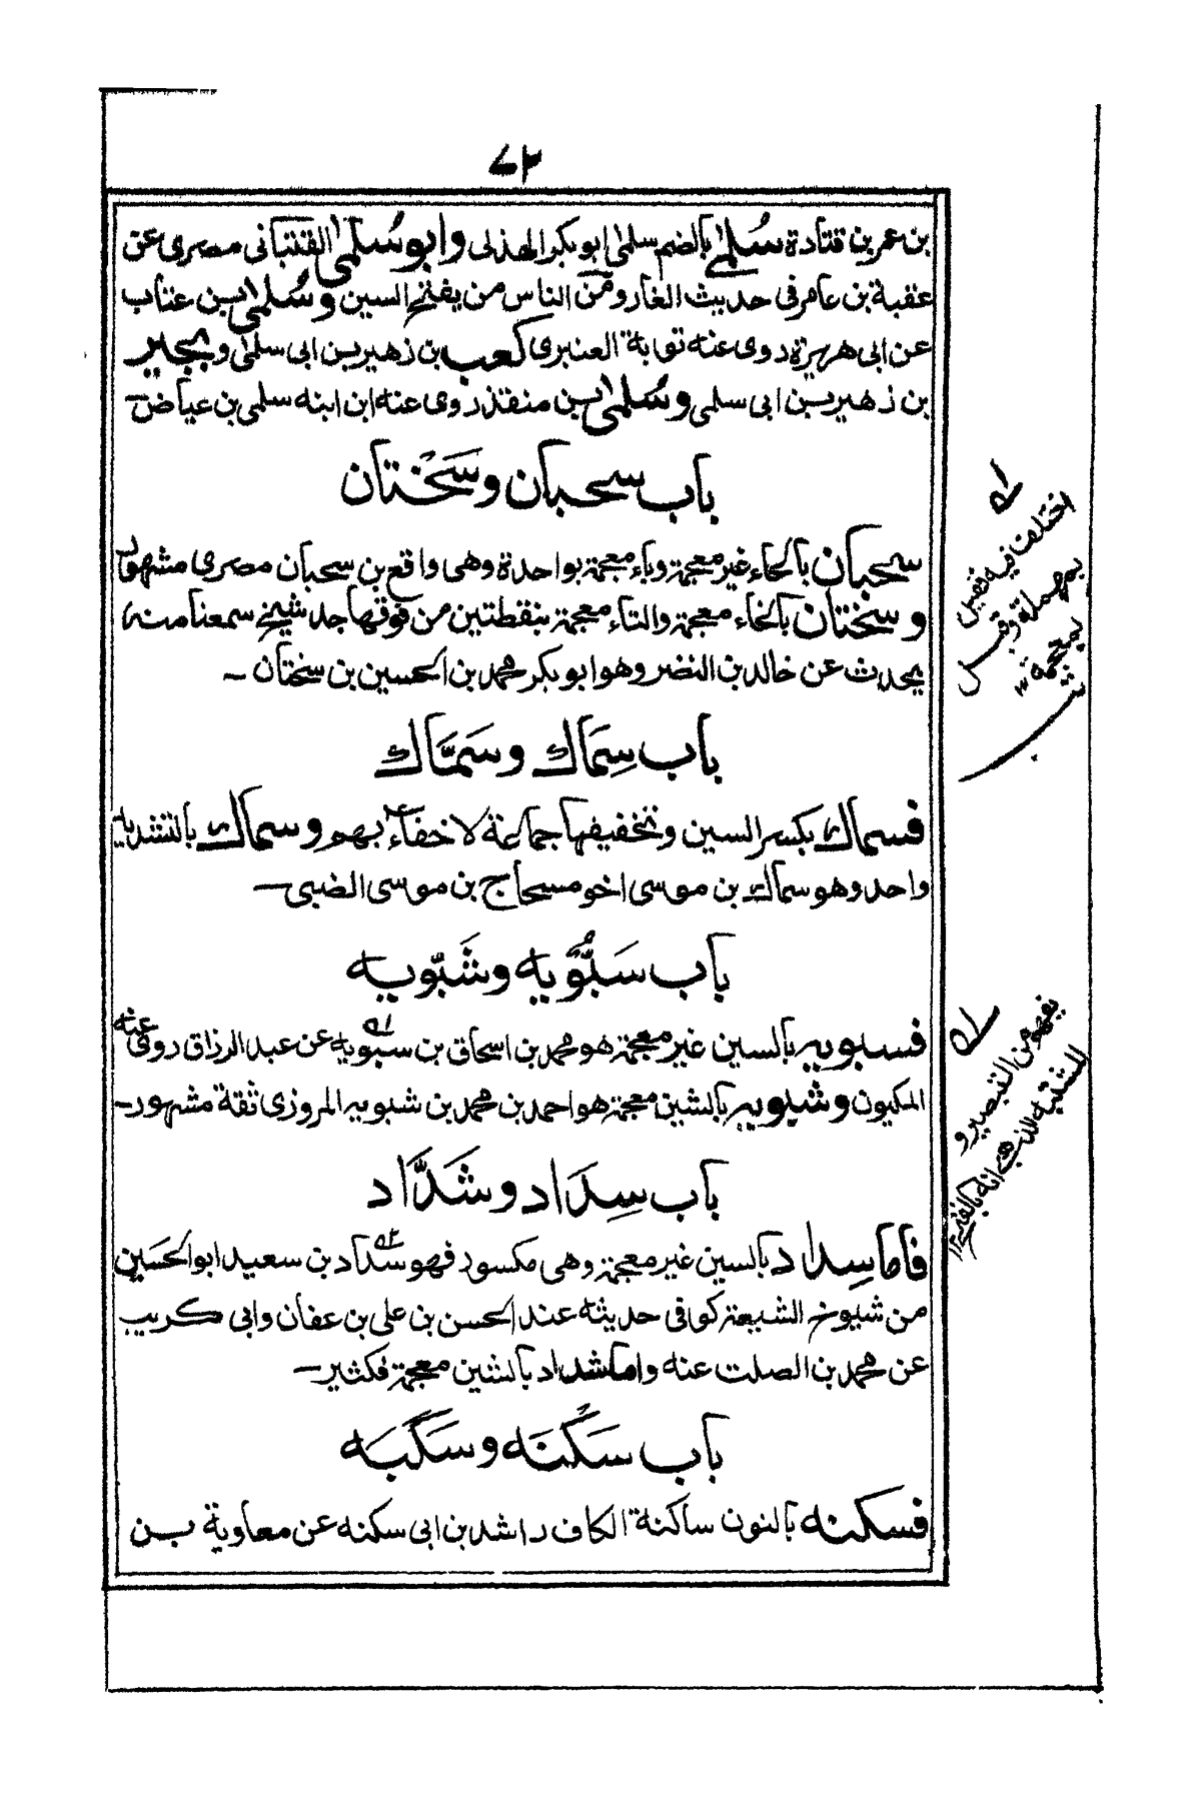 ٧٢
بن عمر بن قتادة سُلمى بالضم سلمى ابو بكر الهذلى وابو سُلمى القتبانى مصرى عن
عقبة بن عامر فى حديث الغار ومن الناس من يفتح السين وسُلمى بن عتاب
عن ابى هريرة روى عنه توبة العنبرى كعب بن زهير بن ابى سلمى وبجير
بن زهير بن ابى سلمى وسُلمى بن منقذ روى عنه ابن ابنه سلمى بن عياض
باب سحبان وسَخْتان
سحبان بالحاء غير معجمة وباء معجمة بواحدة وهى واقع بن سحبان مصرى مشهور
وسختان بالخاء معجمة والتاء معجمة بنقطتين من فوقها جد شيخ سمعنا منه
يحدث عن خالد بن النضر وهو ابو بكر محمد بن الحسين بن سختان
باب سِمَاك وسَمَّاك
فسماك بكسر السين وتخفيفها جماعة لا خفاء بهم وسماك بالتشديد
واحد وهو سماك بن موسى اخو مسحاج بن موسى الضبى
باب سَبُّويه وشَبّويه
فسبويه بالسين غير معجمة هو محمد بن اسحاق بن سبويه عن عبد الرزاق روى عنه
المكيون وشبويه بالشين معجمة هو احمد بن محمد بن شبويه المروزى ثقة مشهور
باب سِدَاد وشَدَّاد
فاما سِداد بالسين غير معجمة وهى مكسور فهو سداد بن سعيد ابو الحسَين
من شيوخ الشيعة كوفى حديثه عند الحسن بن على بن عفان وابى كريب
عن محمد بن الصلت عنه واما شداد بالشين معجمة فكثير
باب سَكْنَه وسَكَبَه
فسكنه بالنون ساكنة الكاف راشد بن ابى سكنه عن معاوية بن
اختلف فيه فقيل
بمهملة وقيل
بمعجمة ١٢
يفهم من التبصير و
المشتبه للذهبى انه بالفتح ١٢